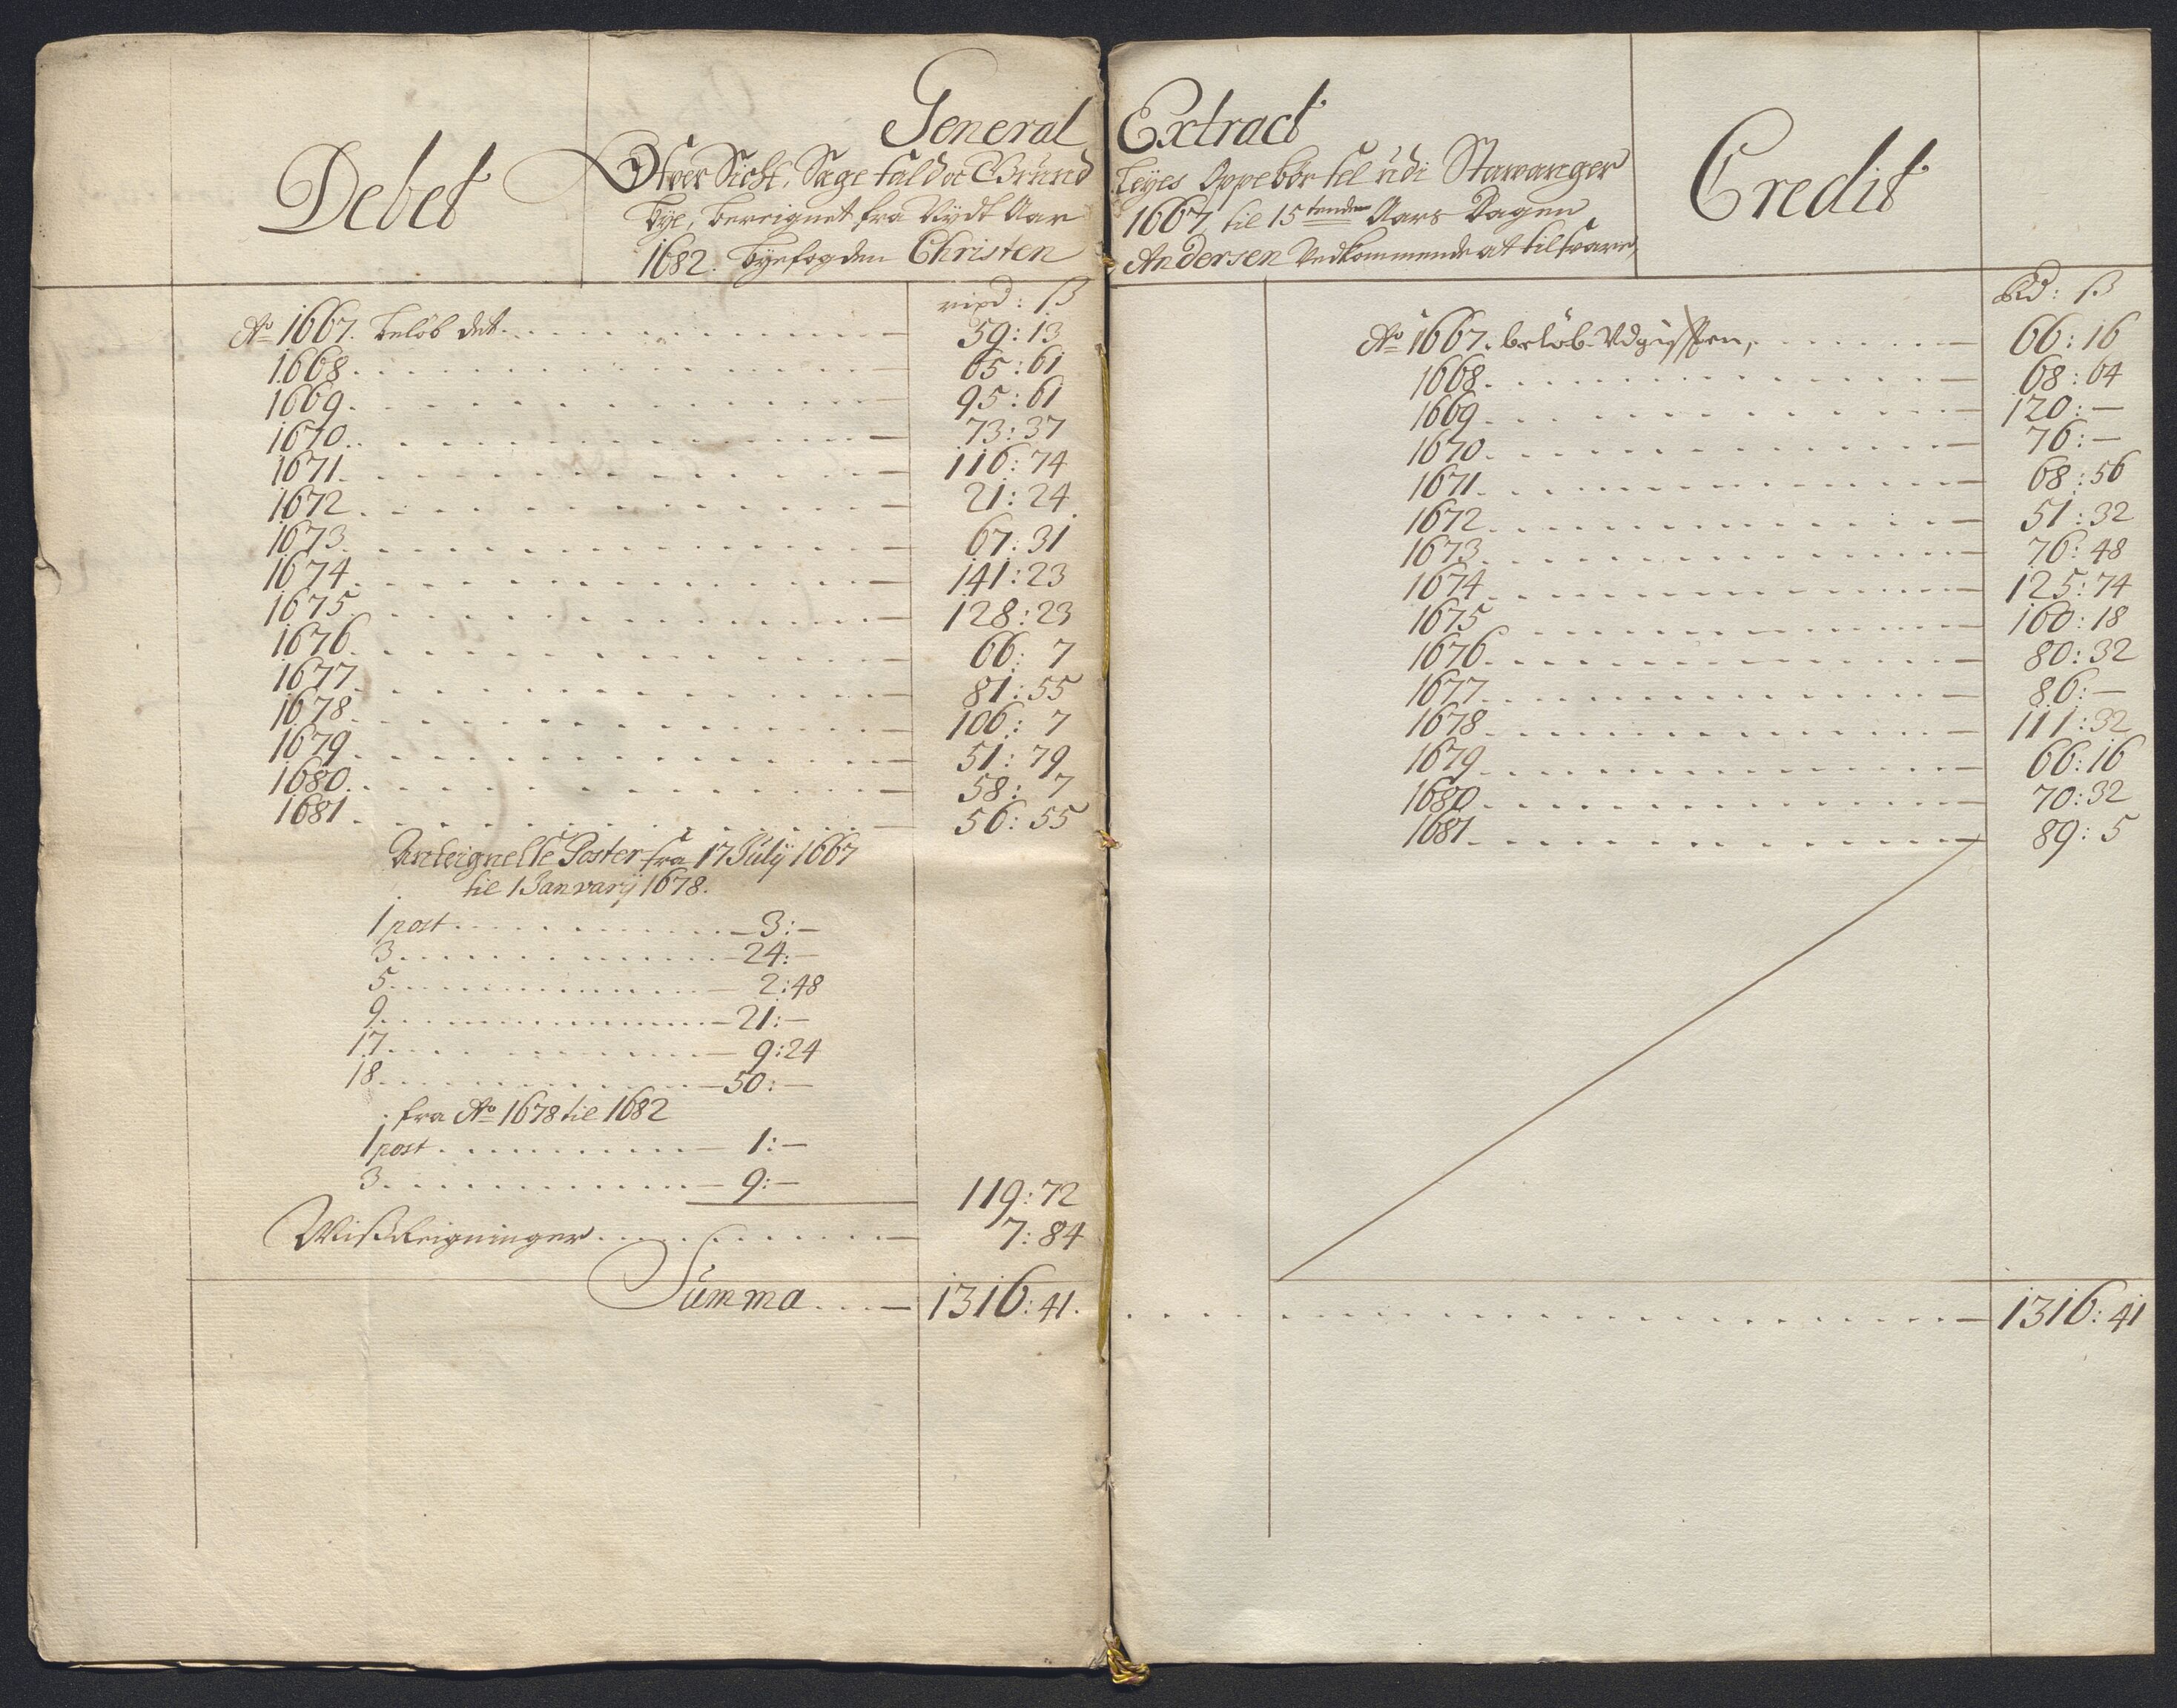 General Extract
Debet
Ofver Sicht, Sagefald oc Grund Leyes Oppebörsel udi Stawanger
Bye, bereignet fra Nydt Aar 1667 til 15tende Aars Dagen
1682. Byefogden Christen Andersen Vedkommende at tilsvare,
Credit
rixd: ß
Ao 1667. belöb det 59:13
1668. 65:61
1669. 95:61
1670. 73:37
1671. 116:74
1672. 21:24
1673. 67:31
1674. 141:23
1675. 128:23
1676. 66: 7
1677. 81:55
1678. 106: 7
1679. 51:79
1680. 58: 7
1681. 56:55
Anteignelse Poster fra 17 Julij 1667
til 1 Januarij 1678.
1 post 3:-
3 24:-
5 2:48
9 21:-
17 9:24
18 50:-
fra Ao 1678 til 1682
1 post 1:-
3 9:- 119:72
Mißreigninger 7:84
Summa 1316:41.
Rd: ß
Ao 1667. belöb Udgifften, 66:16
1668. 68:64
1669. 120:-
1670. 76:-
1671. 68:56
1672. 51:32
1673. 76:48
1674. 125:74
1675. 160:18
1676. 80:32
1677. 86:-
1678. 111:32
1679. 66:16
1680. 70:32
1681. 89: 5
1316:41